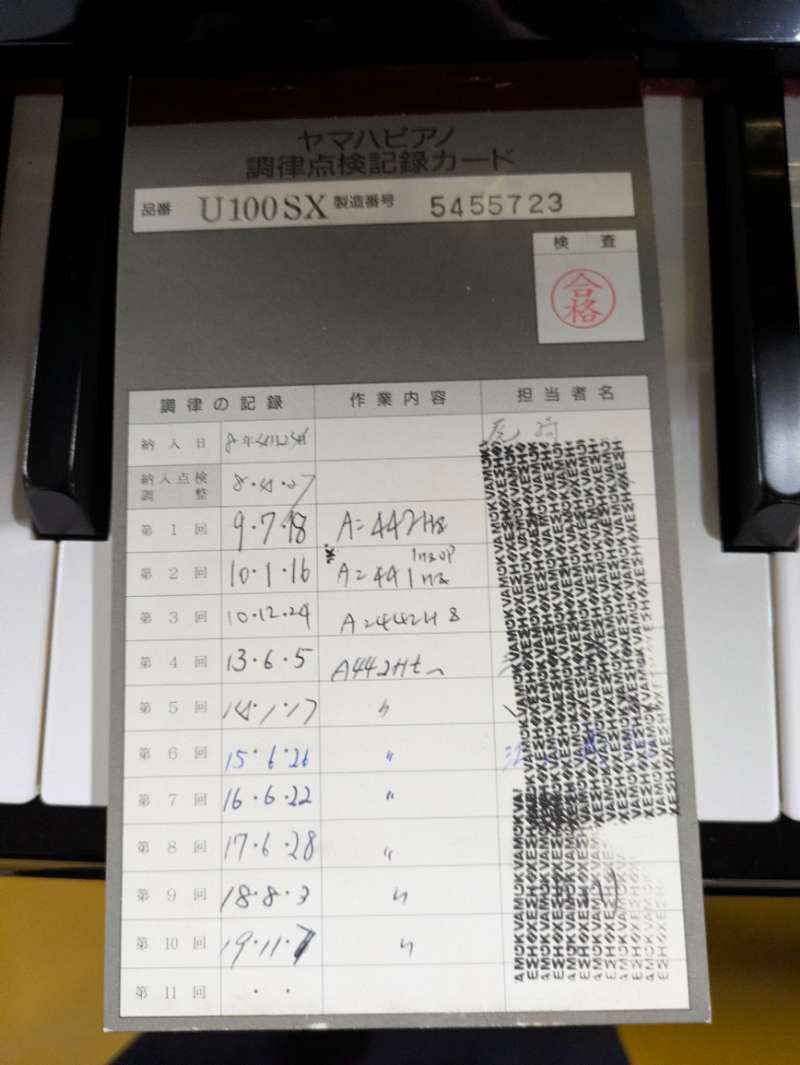 ヤマハピアノ
調律点検記録カード
品番 U100SX 製造番号 5455723
検査
合格
調律の記録 作業内容 担当者名
納入日 8年
納入点検調整 8・4・27
第1回 9・7・18 A=442Hz
第2回 10・1・16 A=441Hz
第3回 10・12・24 A=442Hz
第4回 13・6・5 A442Hz
第5回 14・1・17 〃
第6回 15・6・26 〃
第7回 16・6・22 〃
第8回 17・6・28 〃
第9回 18・8・3 〃
第10回 19・11・7 〃
第11回 ・ ・